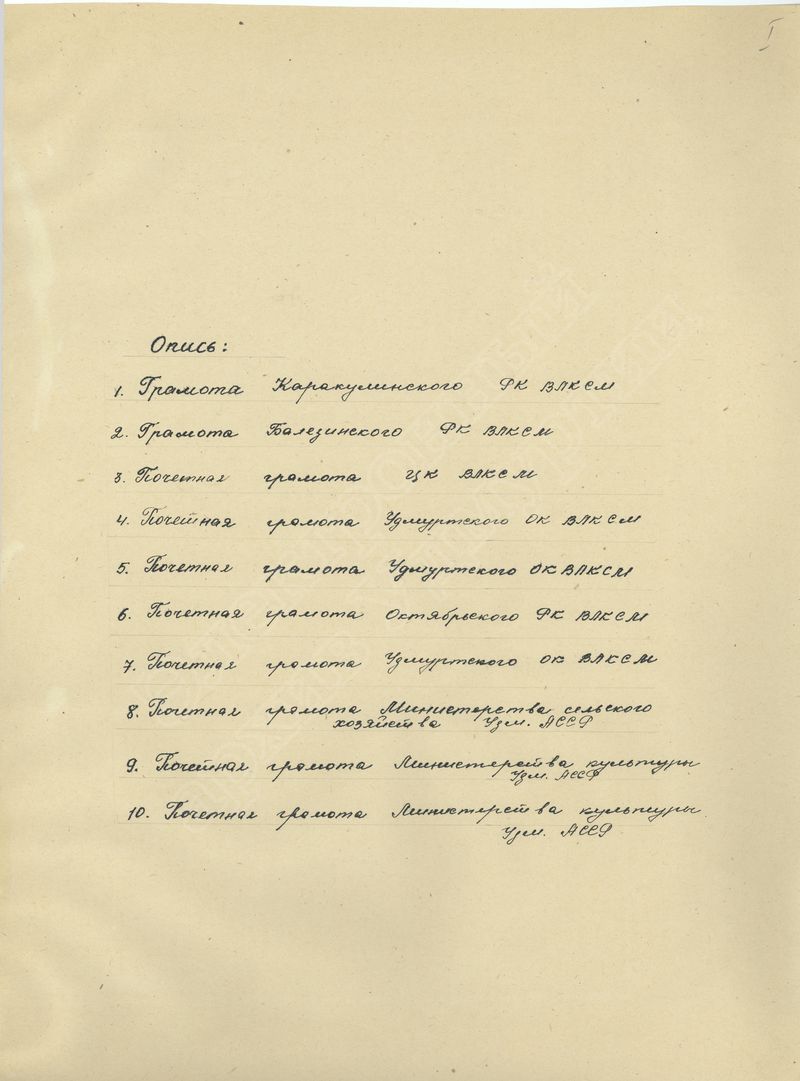 I
Опись:
1. Грамота Каракулинского РК ВЛКСМ
2. Грамота Балезинского РК ВЛКСМ
3. Почетная грамота ЦК ВЛКСМ
4. Почетная грамота Удмуртского ОК ВЛКСМ
5. Почетная грамота Удмуртского ОК ВЛКСМ
6. Почетная грамота Октябрьского РК ВЛКСМ
7. Почетная грамота Удмуртского ОК ВЛКСМ
8. Почетная грамота Министерства сельского
хозяйства Удм. АССР
9. Почетная грамота Министерства культуры
Удм. АССР
10. Почетная грамота Министерства культуры
Удм. АССР